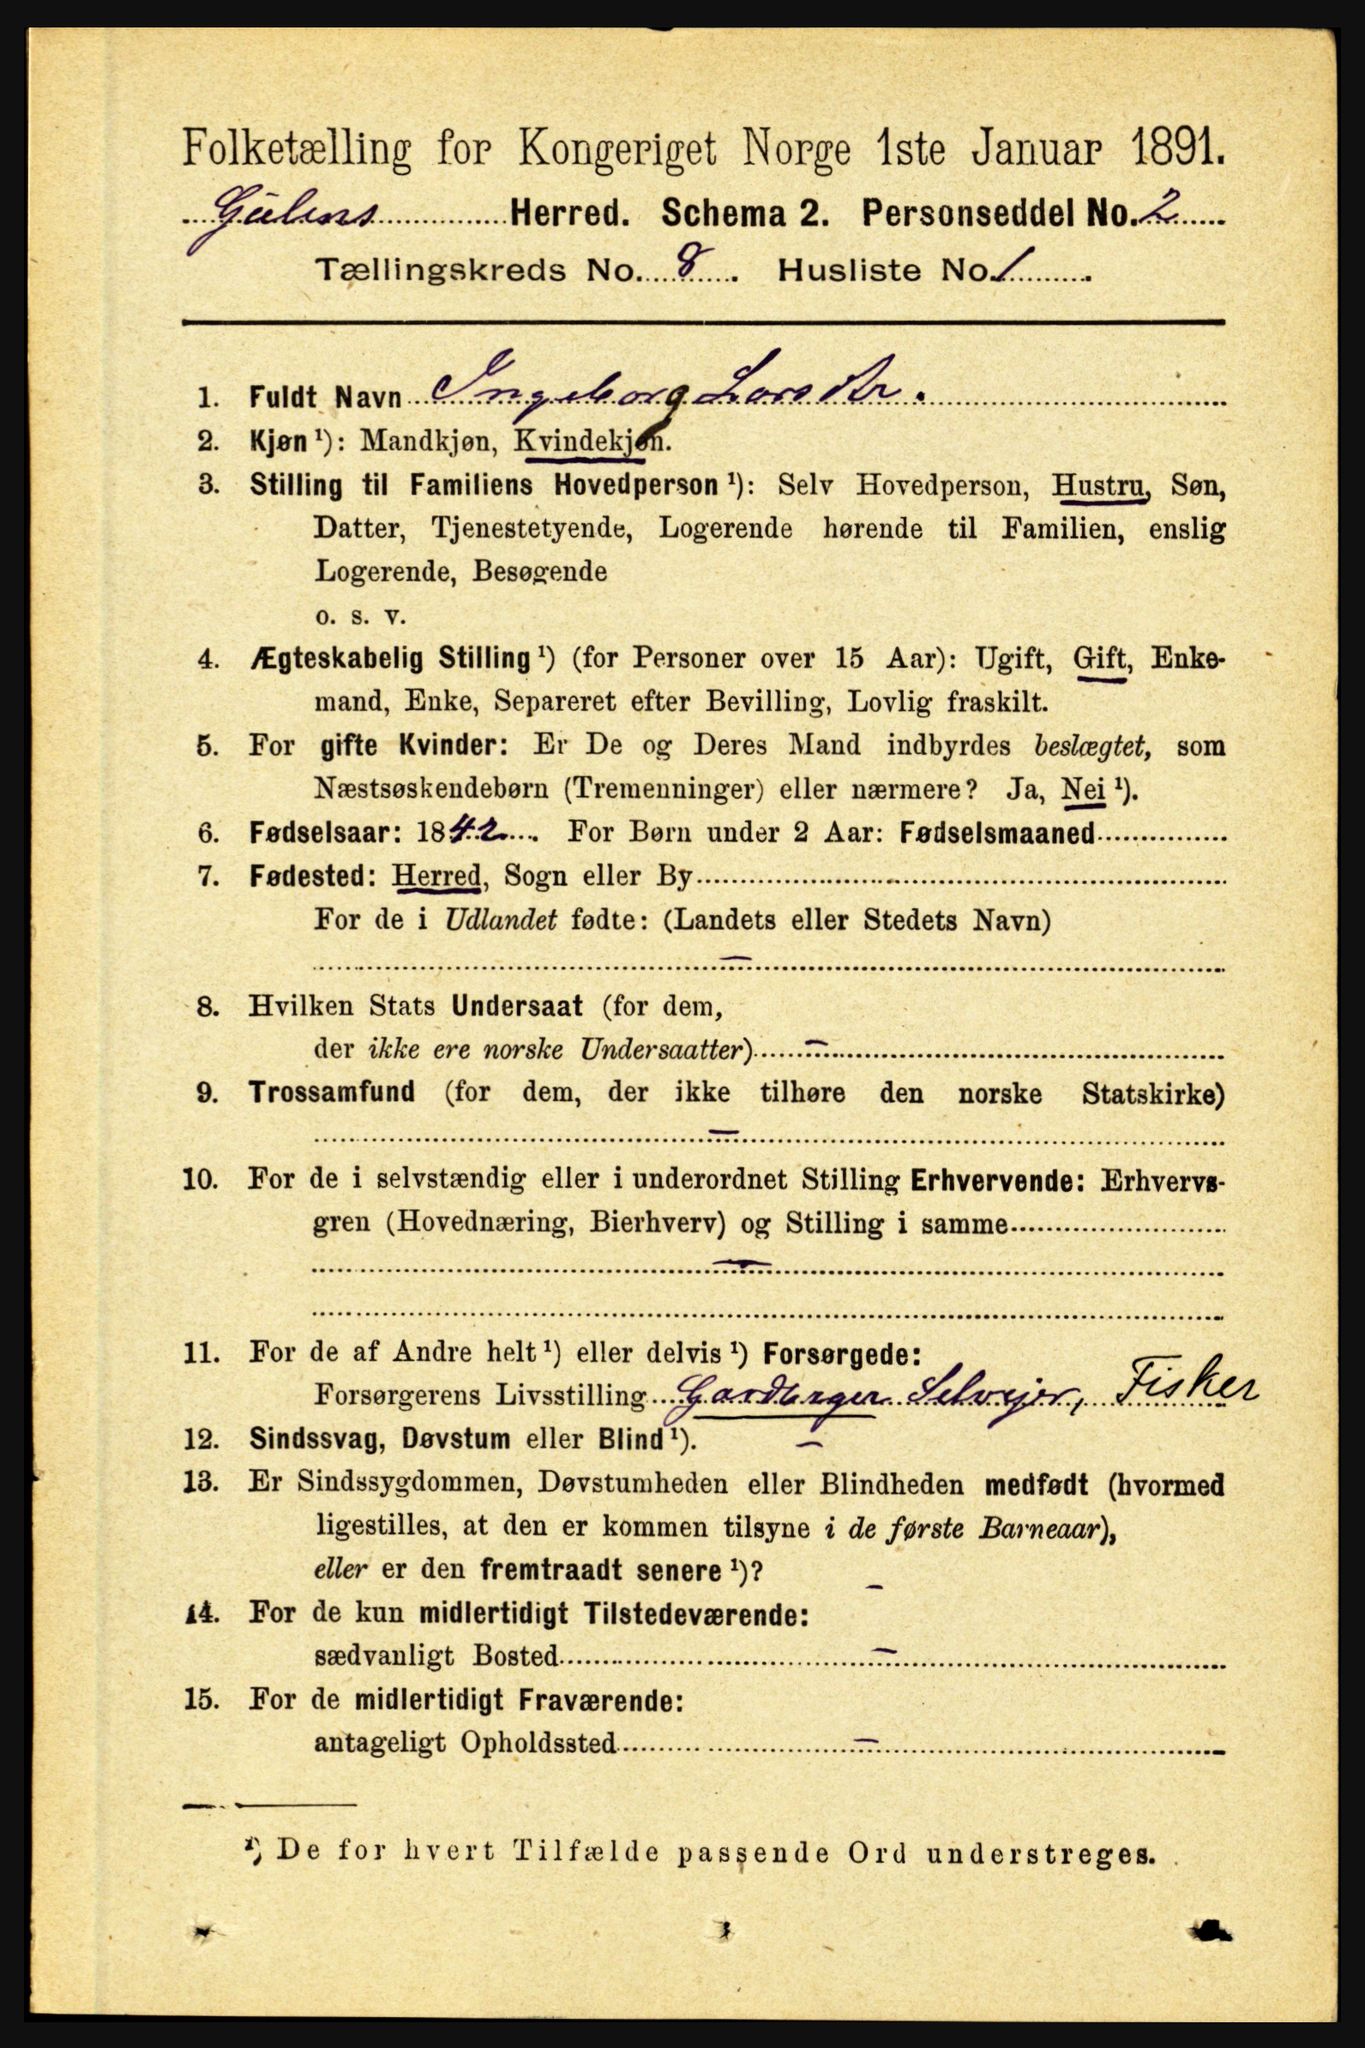 Folketælling for Kongeriget Norge 1ste Januar 1891.
Gulens Herred. Schema 2. Personseddel No. 2
Tællingskreds No. 8. Husliste No. 1.
1. Fuldt Navn Ingeborg Larsdtr.
2. Kjøn ¹): Mandkjøn, Kvindekjøn.
3. Stilling til Familiens Hovedperson ¹): Selv Hovedperson, Hustru, Søn,
Datter, Tjenestetyende, Logerende hørende til Familien, enslig
Logerende, Besøgende
o. s. v.
4. Ægteskabelig Stilling ¹) (for Personer over 15 Aar): Ugift, Gift, Enke-
mand, Enke, Separeret efter Bevilling, Lovlig fraskilt.
5. For gifte Kvinder: Er De og Deres Mand indbyrdes beslægtet, som
Næstsøskendebørn (Tremenninger) eller nærmere? Ja, Nei ¹).
6. Fødselsaar: 1842. For Børn under 2 Aar: Fødselsmaaned
7. Fødested: Herred, Sogn eller By
For de i Udlandet fødte: (Landets eller Stedets Navn)
—
8. Hvilken Stats Undersaat (for dem,
der ikke ere norske Undersaatter) —
9. Trossamfund (for dem, der ikke tilhøre den norske Statskirke)
—
10. For de i selvstændig eller i underordnet Stilling Erhvervende: Erhvervs-
gren (Hovednæring, Bierhverv) og Stilling i samme
—
11. For de af Andre helt ¹) eller delvis ¹) Forsørgede:
Forsørgerens Livsstilling Gardbruger Selvejer, Fisker
12. Sindssvag, Døvstum eller Blind ¹). —
13. Er Sindssygdommen, Døvstumheden eller Blindheden medfødt (hvormed
ligestilles, at den er kommen tilsyne i de første Barneaar),
eller er den fremtraadt senere ¹)? —
14. For de kun midlertidigt Tilstedeværende:
sædvanligt Bosted —
15. For de midlertidigt Fraværende:
antageligt Opholdssted —
¹) De for hvert Tilfælde passende Ord understreges.